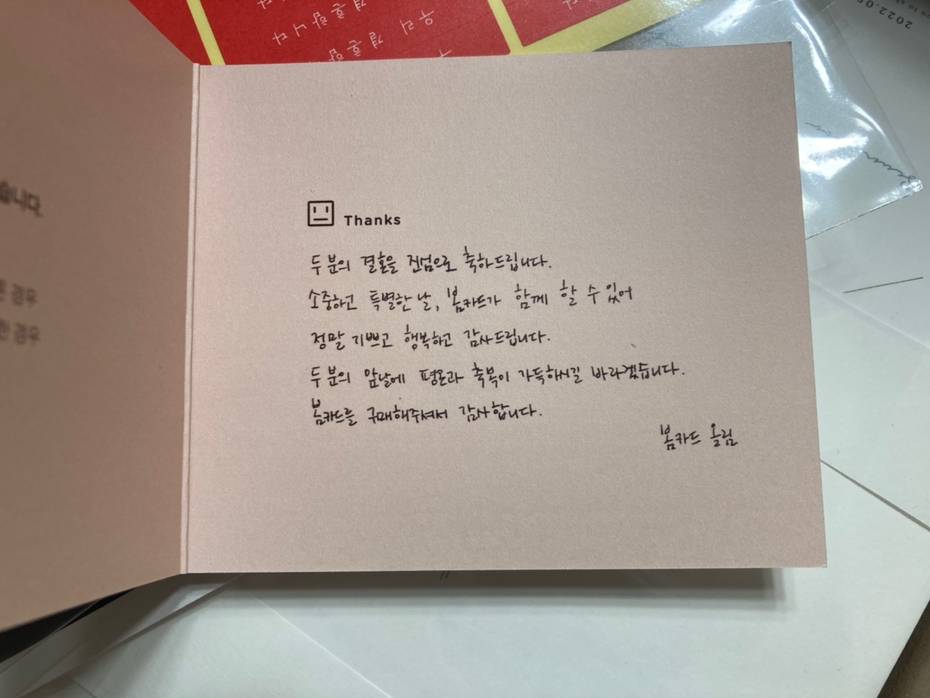 우리 결혼합니다
2022.05
습니다.
경우
경우
Thanks
두 분의 결혼을 진심으로 축하드립니다.
소중하고 특별한 날, 봄카드가 함께 할 수 있어
정말 기쁘고 행복하고 감사드립니다.
두 분의 앞날에 평온과 축복이 가득하시길 바라겠습니다.
봄카드를 구매해주셔서 감사합니다.
봄카드 올림